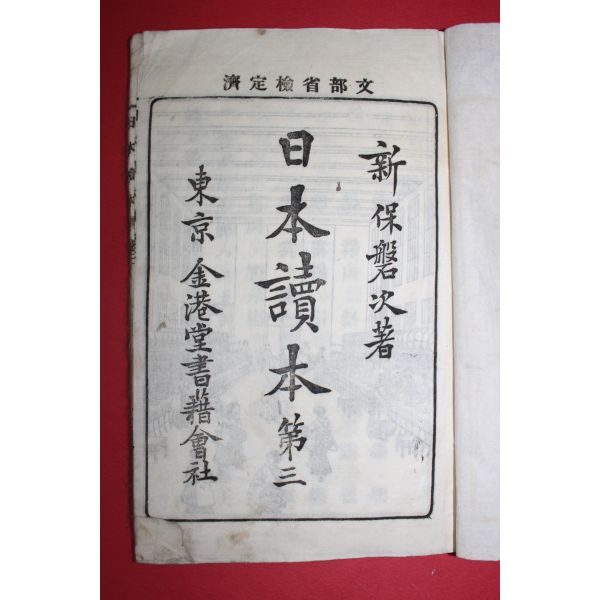 文部省檢定濟
新保磐次著
日本讀本第三
東京 金港堂書籍會社